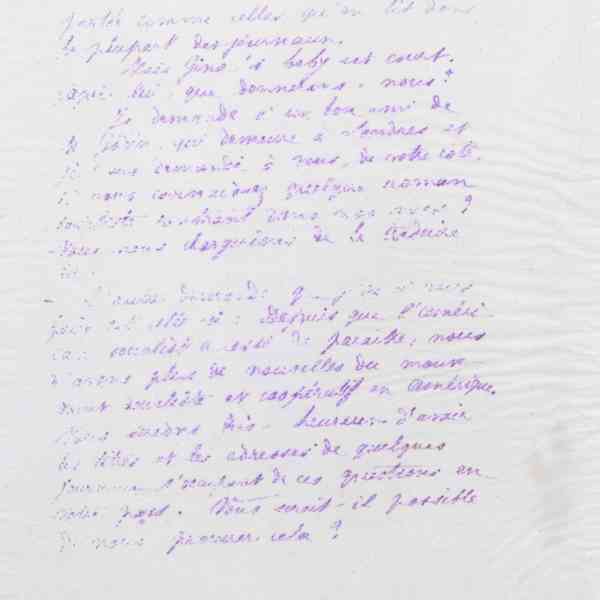 portée comme celles qu'on lit dans
la plupart des journaux.
Mais Zina's baby est court.
Après lui, que donnerons-nous?
Je demande à un bon ami de
qui demeure à Londres et
je demande à vous, de votre côté,
si vous connaissez quelque roman
socialiste
Nous nous chargerions de le traduire
ici.
L'autre demande que j'ai à vous
faire est celle-ci : Depuis que l'Améri-
cain socialiste a cessé de paraître, nous
n'avons plus de nouvelles du mouve-
ment socialiste et coopératif en Amérique.
Nous serions très-heureux d'avoir
les titres et les adresses de quelques
journaux s'occupant de ces questions en
votre pays. Vous serait-il possible
de nous procurer cela ?